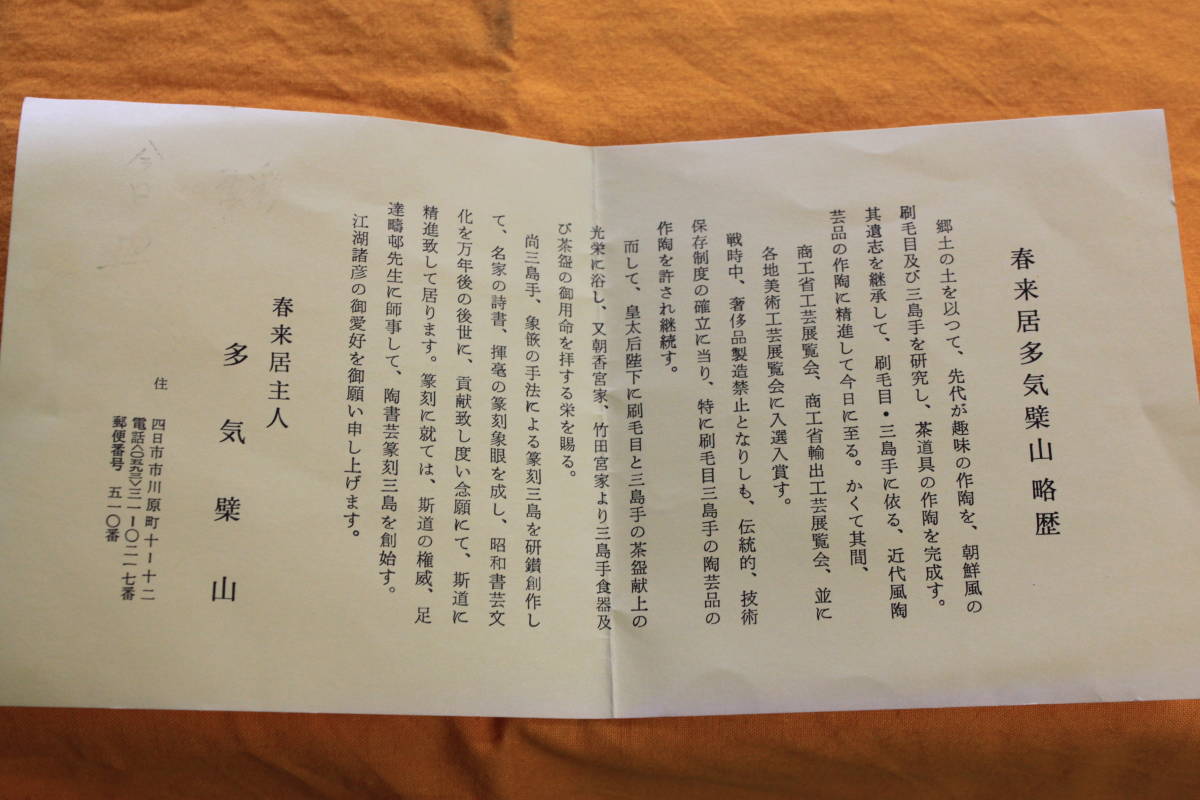 春来居多気檗山略歴
郷土の土を以つて、先代が趣味の作陶を、朝鮮風の
刷毛目及び三島手を研究し、茶道具の作陶を完成す。
其遺志を継承して、刷毛目・三島手に依る、近代風陶
芸品の作陶に精進して今日に至る。かくて其間、
商工省工芸展覧会、商工省輸出工芸展覧会、並に
各地美術工芸展覧会に入選入賞す。
戦時中、奢侈品製造禁止となりしも、伝統的、技術
保存制度の確立に当り、特に刷毛目三島手の陶芸品の
作陶を許され継続す。
而して、皇太后陛下に刷毛目と三島手の茶盌献上の
光栄に浴し、又朝香宮家、竹田宮家より三島手食器及
び茶盌の御用命を拝する栄を賜る。
尚三島手、象嵌の手法による篆刻三島を研鑚創作し
て、名家の詩書、揮毫の篆刻象眼を成し、昭和書芸文
化を万年後の後世に、貢献致し度い念願にて、斯道に
精進致して居ります。篆刻に就ては、斯道の権威、足
達疇邨先生に師事して、陶書芸篆刻三島を創始す。
江湖諸彦の御愛好を御願い申し上げます。
春来居主人
多気檗山
住 四日市市川原町十ー十二
電話〈〇五九三〉三一ー〇二一七番
郵便番号 五一〇番
今日